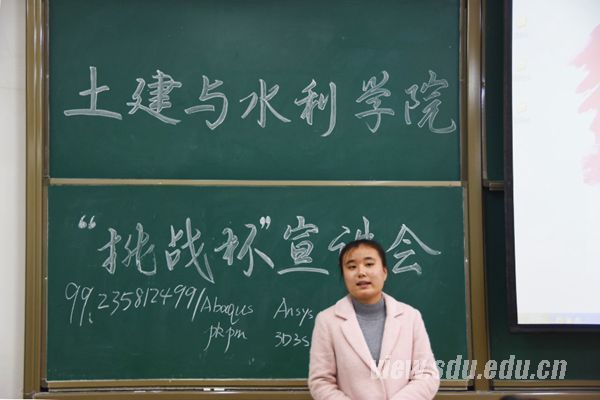 土建与水利学院
“挑战杯”宣讲会
99.235812499/
Abaqus Ansys
pkpm 3D3S
view.sdu.edu.cn